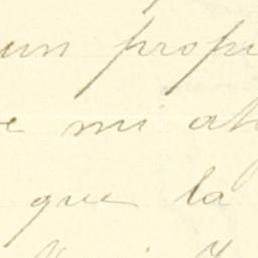 un propi
e mi at
que la